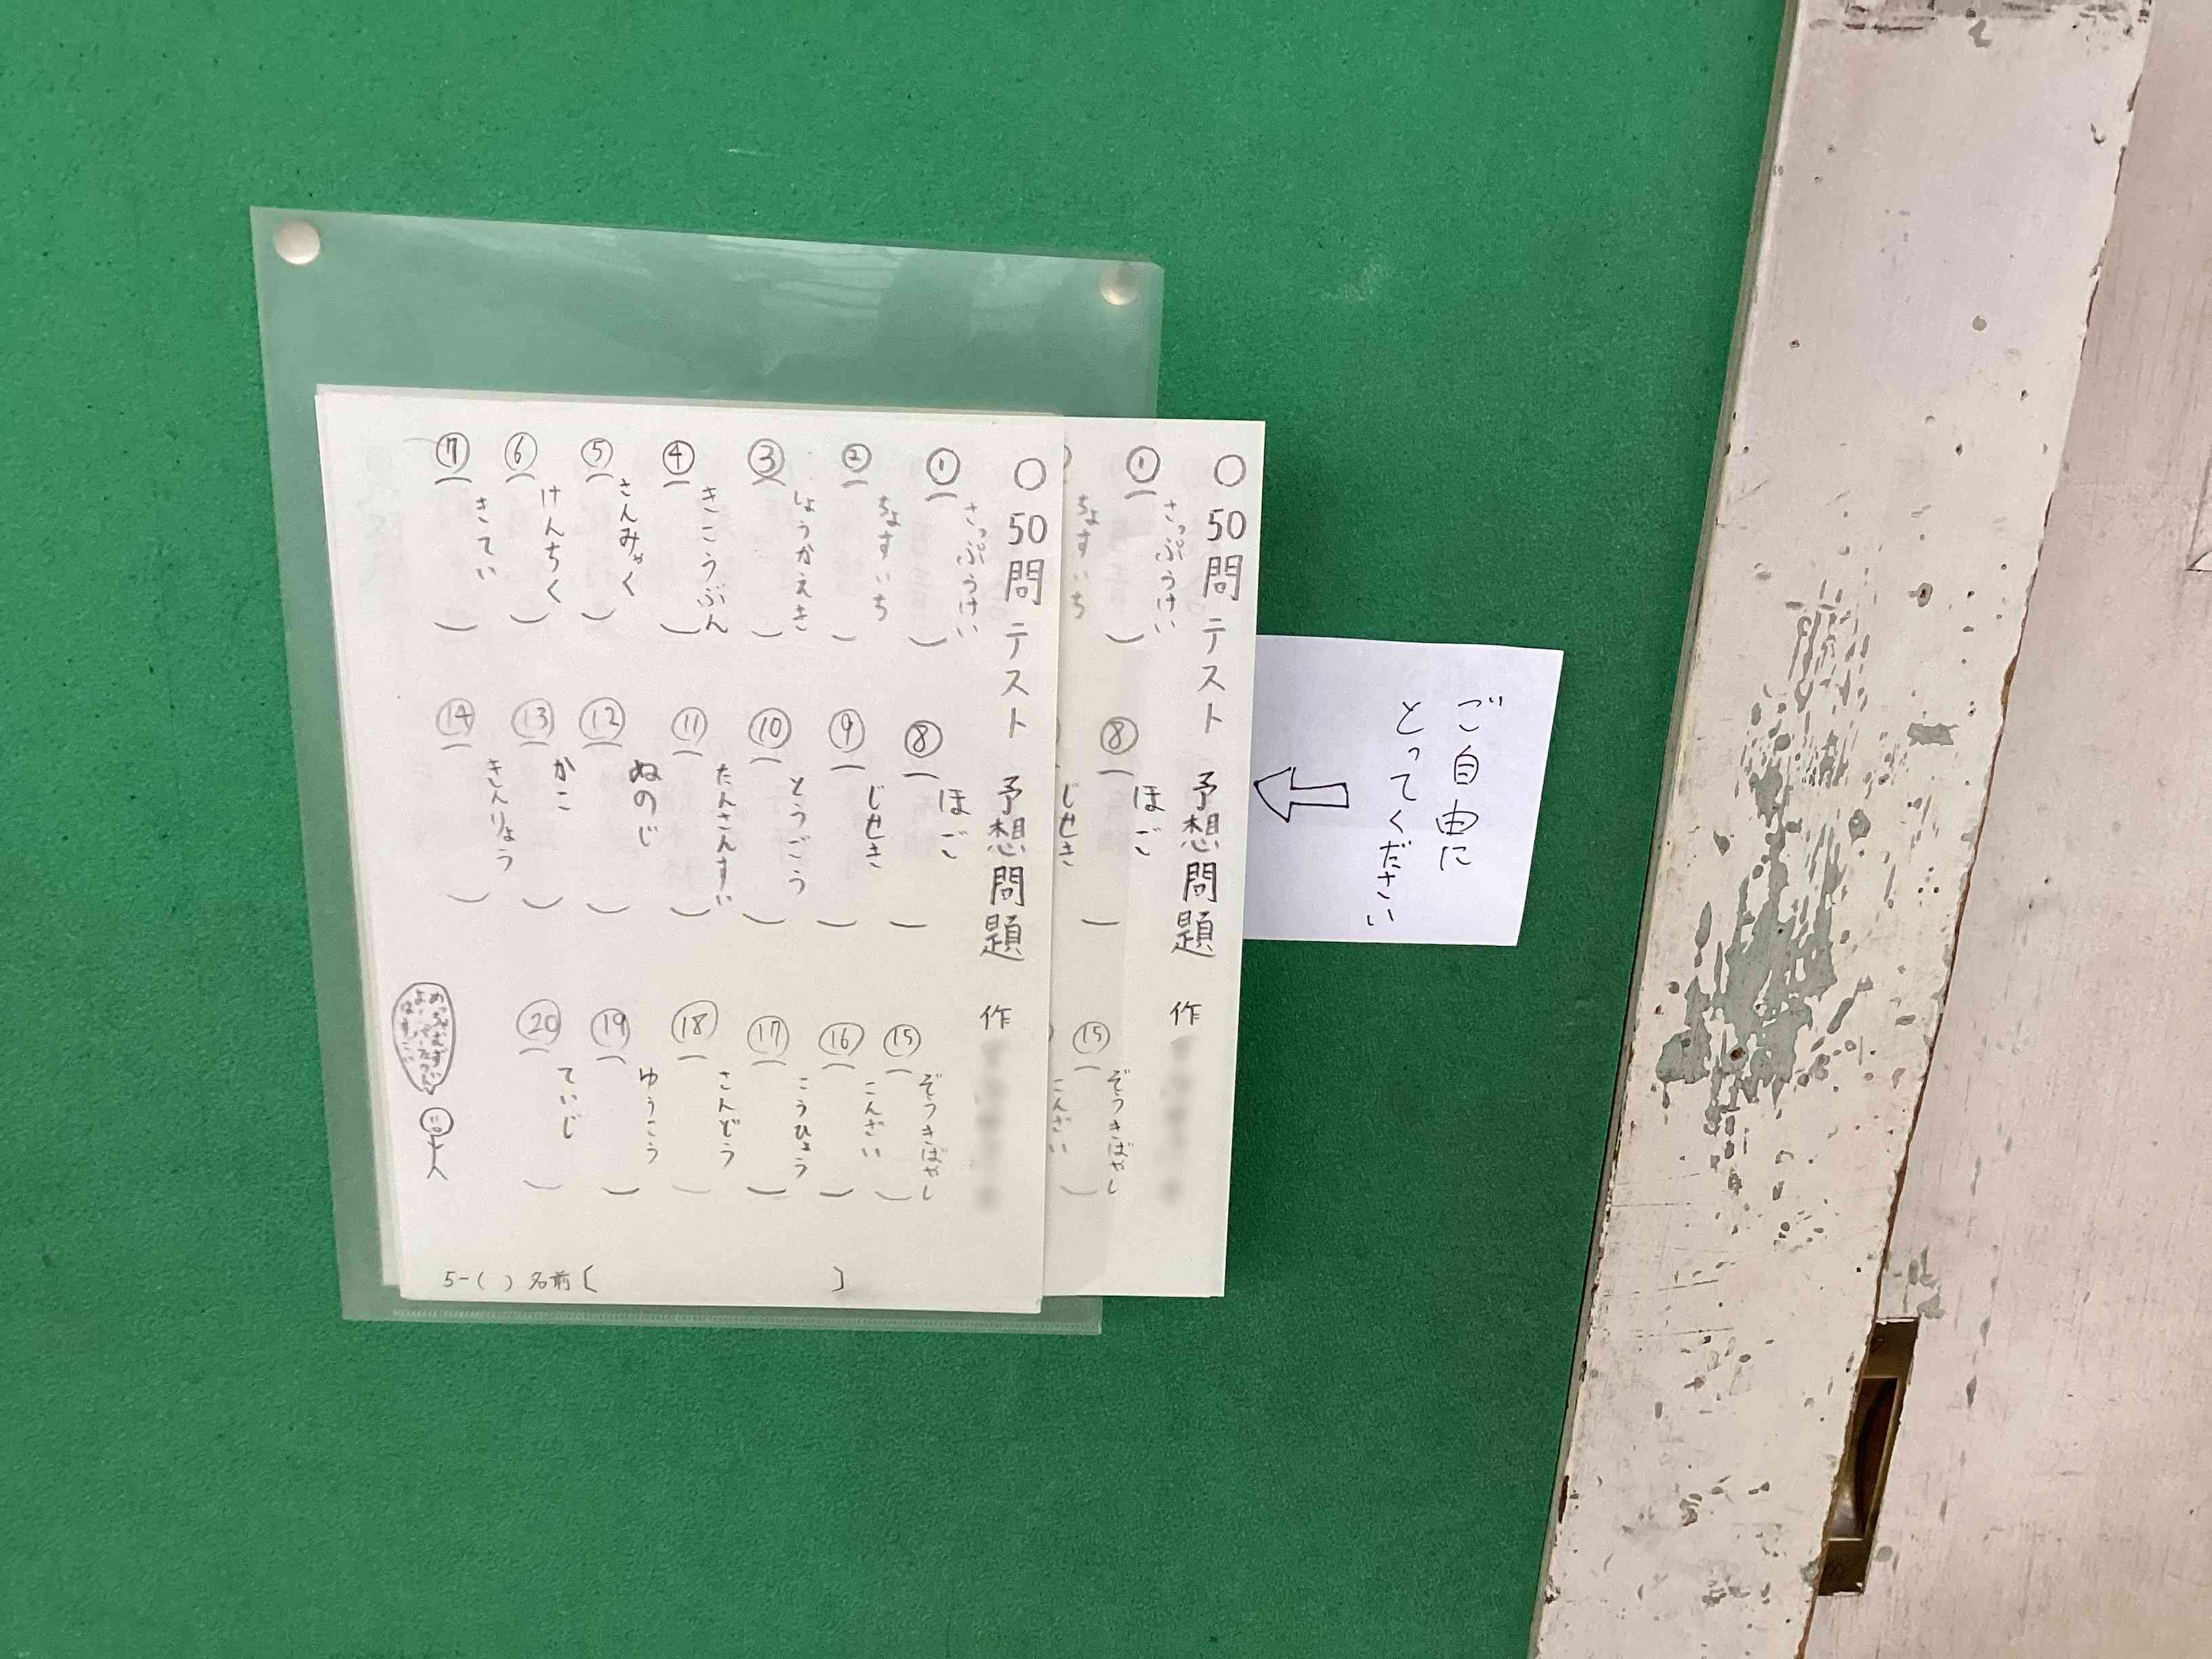 ○50問テスト 予想問題 作
① さっぷうけい
② ちょすいち
③ しょうかえき
④ きこうぶん
⑤ さんみゃく
⑥ けんちく
⑦ きてい
⑧ ほご
⑨ じせき
⑩ とうごう
⑪ たんさんすい
⑫ ぬのじ
⑬ かこ
⑭ きんりょう
⑮ ぞうきばやし
⑯ こんざい
⑰ こうひょう
⑱ さんどう
⑲ ゆうこう
⑳ ていじ
5-( ) 名前〔 〕
○50問テスト 予想問題 作
① さっぷうけい
ちょすいち
⑧ ほご
じせき
⑮ ぞうきばやし
こんざい
ご自由に
とってください